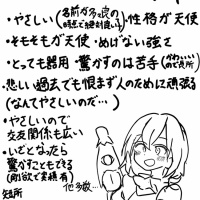 ・やさしい(名前が多々良の時点で絶対良い子)性格が天使
・そもそもが天使・めげない強さ
・とっても器用・驚かすのは苦手(かわいいので長所)
・悲しい過去でも恨まず人のために頑張る
(なんてやさしいのだ…)
・やさしいので
交友関係も広い
・いざとなったら
驚かすこともできる
(剛欲で実績有)
他多数…
短所